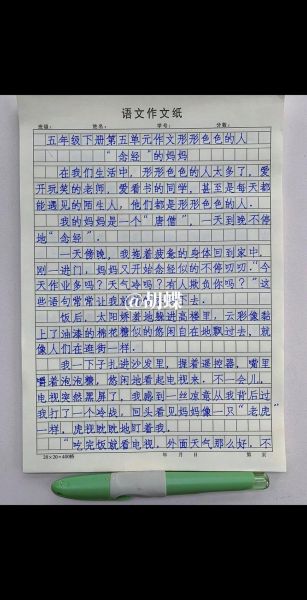 语文作文纸
班级： 姓名： 学号： 分数：
五年级下册第五单元作文形形色色的人
“念经”的妈妈
在我们生活中，形形色色的人太多了，爱
开玩笑的老师，爱看书的同学，甚至是每天都
能遇见的陌生人，他们都是形形色色的人．
我的妈妈是一个“唐僧”，一天到晚不停
地“念经”．
一天傍晚，我拖着疲惫的身体回到家中，
别一进门，妈妈又开始念经似的不停叨叨．“今
天作业多吗？天气冷吗？有人欺负你吗？”这
些语句常常让我 下去．
@胡蝶
饭后，太阳娇羞地躲进高楼里，云彩像黏
上了油漆的棉花糖似的悠闲自在地飘过去，就
像人们在逛街一样．
我一下子扎进沙发里，握着遥控器，嘴里
嚼着泡泡糖，悠闲地看起电视来．不一会儿，
电视突然黑屏了，我感到一丝凉意从我背后过
我打了一个冷战，回头看见妈妈像一只“老虎
一样，虎视眈眈地盯着我．
“吃完饭就看电视，外面天气那么好，不
20×20=400格 年 月 日 第 页